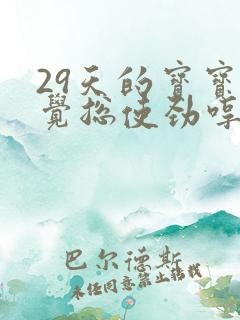 29天的宝宝
觉总使劲哼
巴尔德斯
未经同意禁止转载